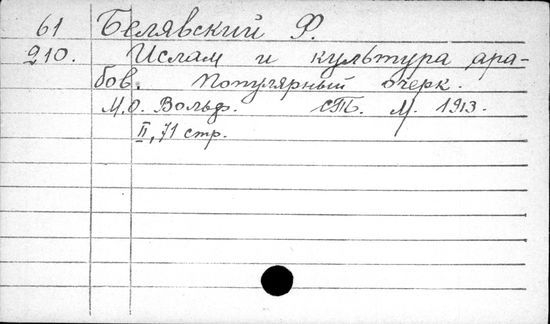 61 Белявский Ф.
210. Ислам и культура ара-
бов. Популярный очерк.
М.О. Вольф. СПб. М. 1913.
II, 71 стр.